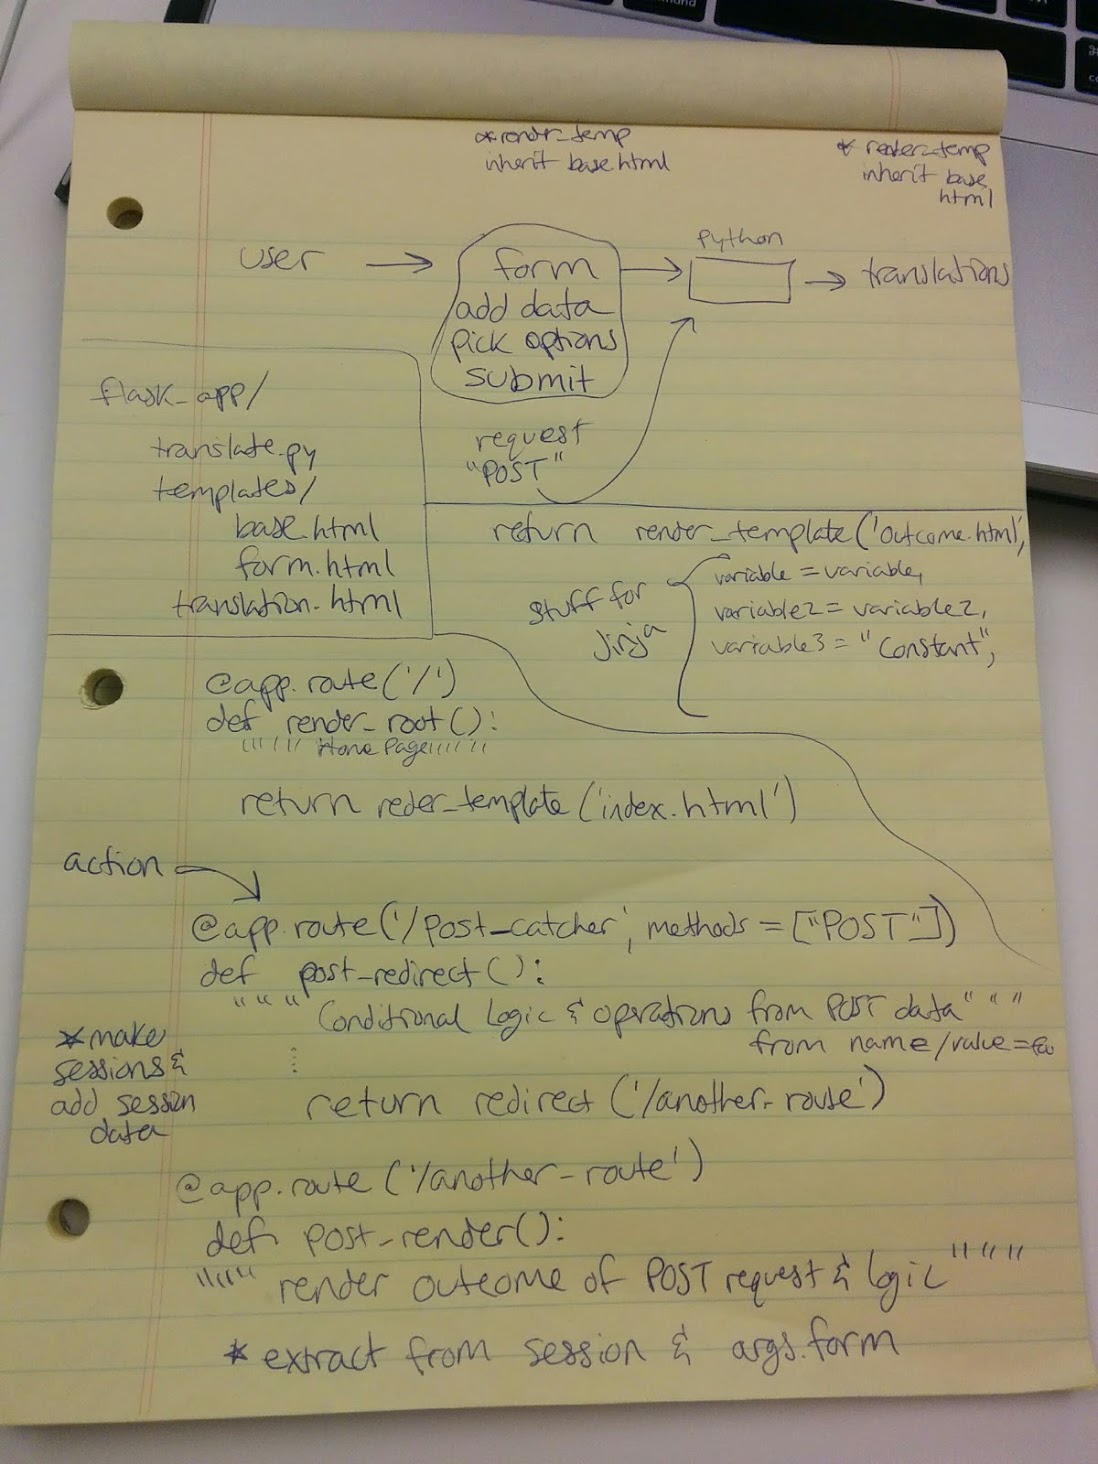 *render_temp
inherit base html
* reder_temp
inherit base
html
user
form
add data
pick options
submit
python
translations
request
"POST"
flask_app/
translate.py
templates/
base.html
form.html
translation.html
return render_template('outcome.html',
variable = variable,
variable2 = variable2,
variable3 = "Constant",
stuff for
Jinja
@app.route('/')
def render_root():
""" Home Page """
return reder_template('index.html')
action
@app.route('/post_catcher', methods = ["POST"])
def post_redirect():
""" Conditional Logic & operations from POST data """
from name/value =
*make
sessions &
add session
data
return redirect('/another_route')
@app.route('/another_route')
def post_render():
""" render outcome of POST request & logic """
* extract from session & args.form